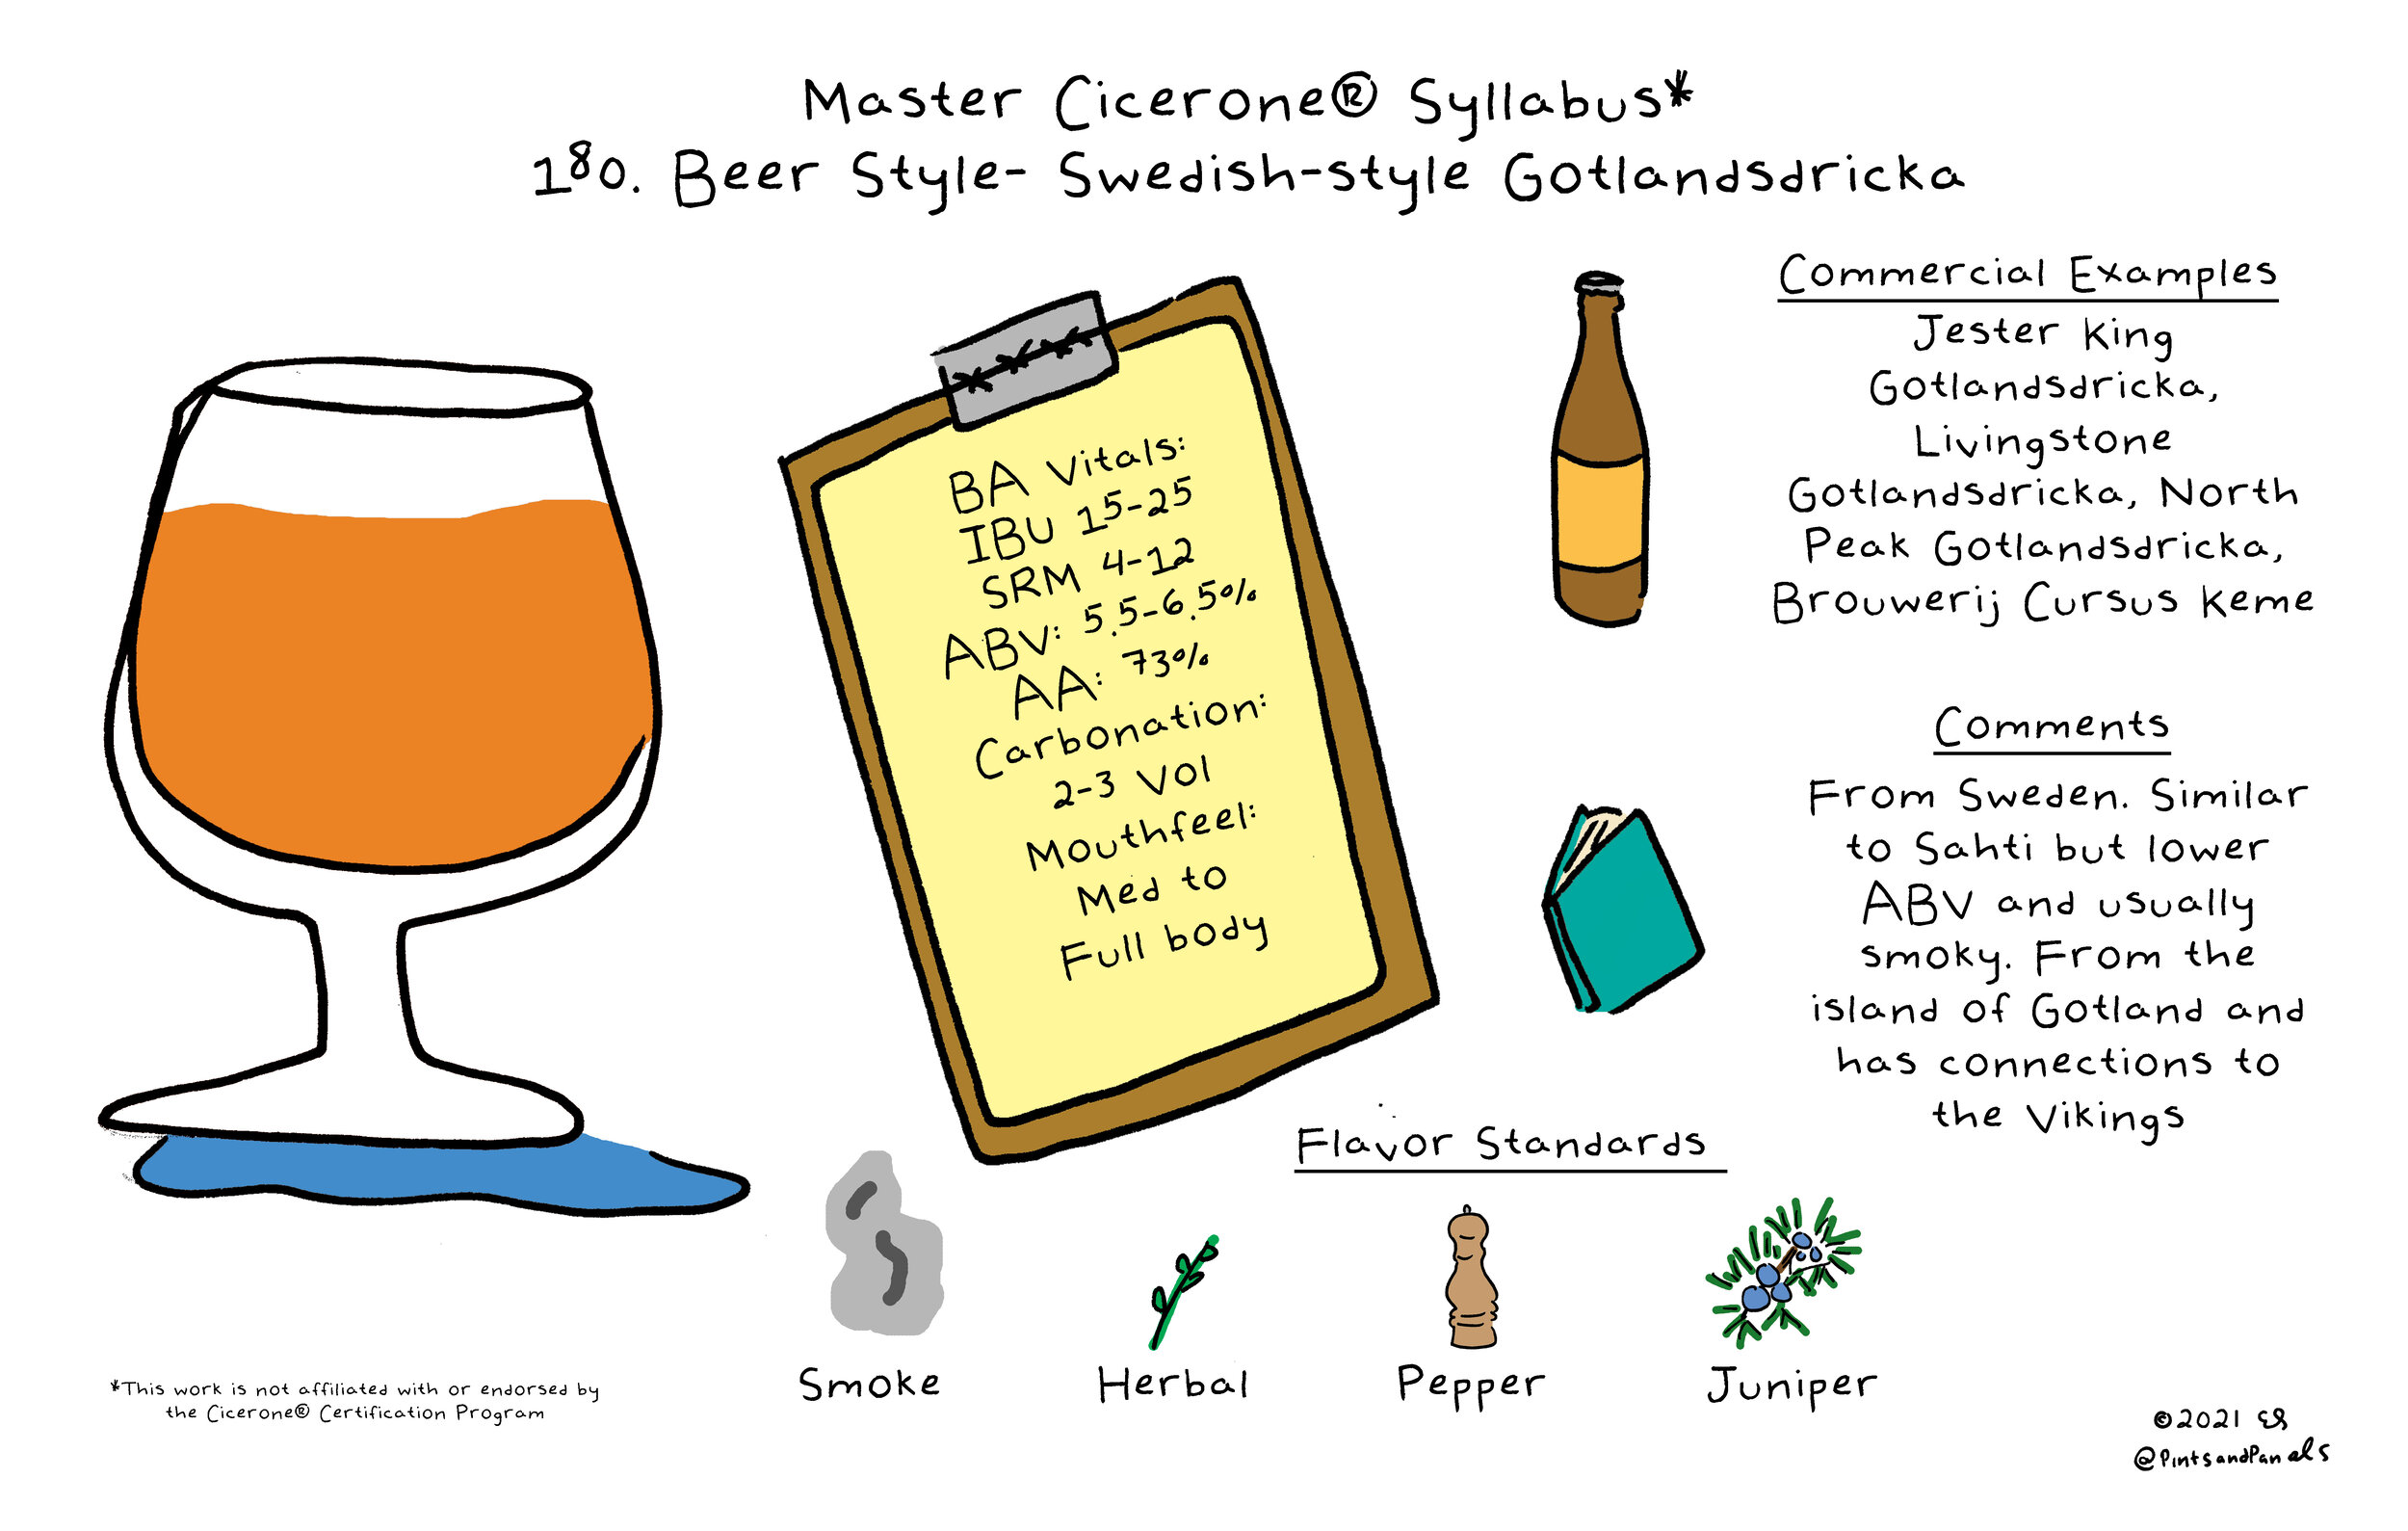 Master Cicerone® Syllabus*
180. Beer Style- Swedish-style Gotlandsdricka
BA Vitals:
IBU 15-25
SRM 4-12
ABV: 5.5-6.5%
AA: 73%
Carbonation:
2-3 Vol
Mouthfeel:
Med to
Full body
Commercial Examples
Jester King
Gotlandsdricka,
Livingstone
Gotlandsdricka, North
Peak Gotlandsdricka,
Brouwerij Cursus Keme
Comments
From Sweden. Similar
to Sahti but lower
ABV and usually
smoky. From the
island of Gotland and
has connections to
the Vikings
Flavor Standards
Smoke
Herbal
Pepper
Juniper
*This work is not affiliated with or endorsed by
the Cicerone® Certification Program
©2021 ES
@PintsandPanels